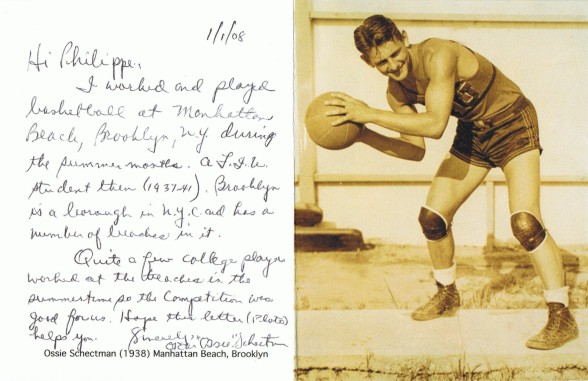 1/1/08
Hi Philippe,
I worked and played
basketball at Manhattan
Beach, Brooklyn, N.Y. during
the summer months. A L.I.U.
student then (1937-41). Brooklyn
is a borough in N.Y.C. and has a
number of beaches in it.
Quite a few college players
worked at the beaches in the
summertime so the competition was
good for us. Hope this letter (& photo)
helps you. Sincerely, "Ossie" Schectman
Ossie Schectman (1938) Manhattan Beach, Brooklyn